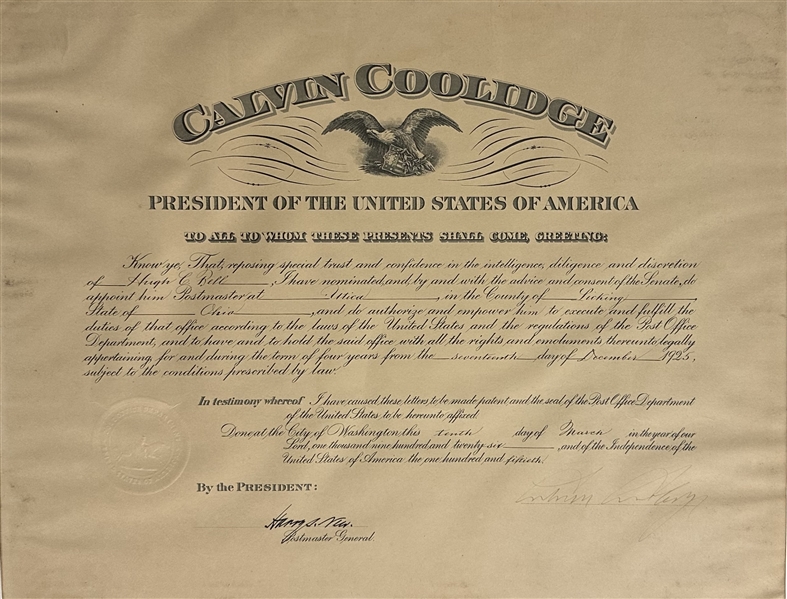 CALVIN COOLIDGE
PRESIDENT OF THE UNITED STATES OF AMERICA
TO ALL TO WHOM THESE PRESENTS SHALL COME, GREETING:
Know ye, That, reposing special trust and confidence in the intelligence, diligence and discretion
of Hugh C. Bell, I have nominated, and, by and with the advice and consent of the Senate, do
appoint him Postmaster at Utica, in the County of Licking,
State of Ohio, and do authorize and empower him to execute and fulfill the
duties of that office according to the laws of the United States and the regulations of the Post Office
Department, and to have and to hold the said office with all the rights and emoluments thereunto legally
appertaining, for and during the term of four years from the seventeenth day of December 1925,
subject to the conditions prescribed by law.
In testimony whereof I have caused these letters to be made patent, and the seal of the Post Office Department
of the United States to be hereunto affixed.
Done at the City of Washington this tenth day of March in the year of our
Lord, one thousand nine hundred and twenty six, and of the Independence of the
United States of America the one hundred and fiftieth.
By the PRESIDENT:
Calvin Coolidge
Harry S. New
Postmaster General.